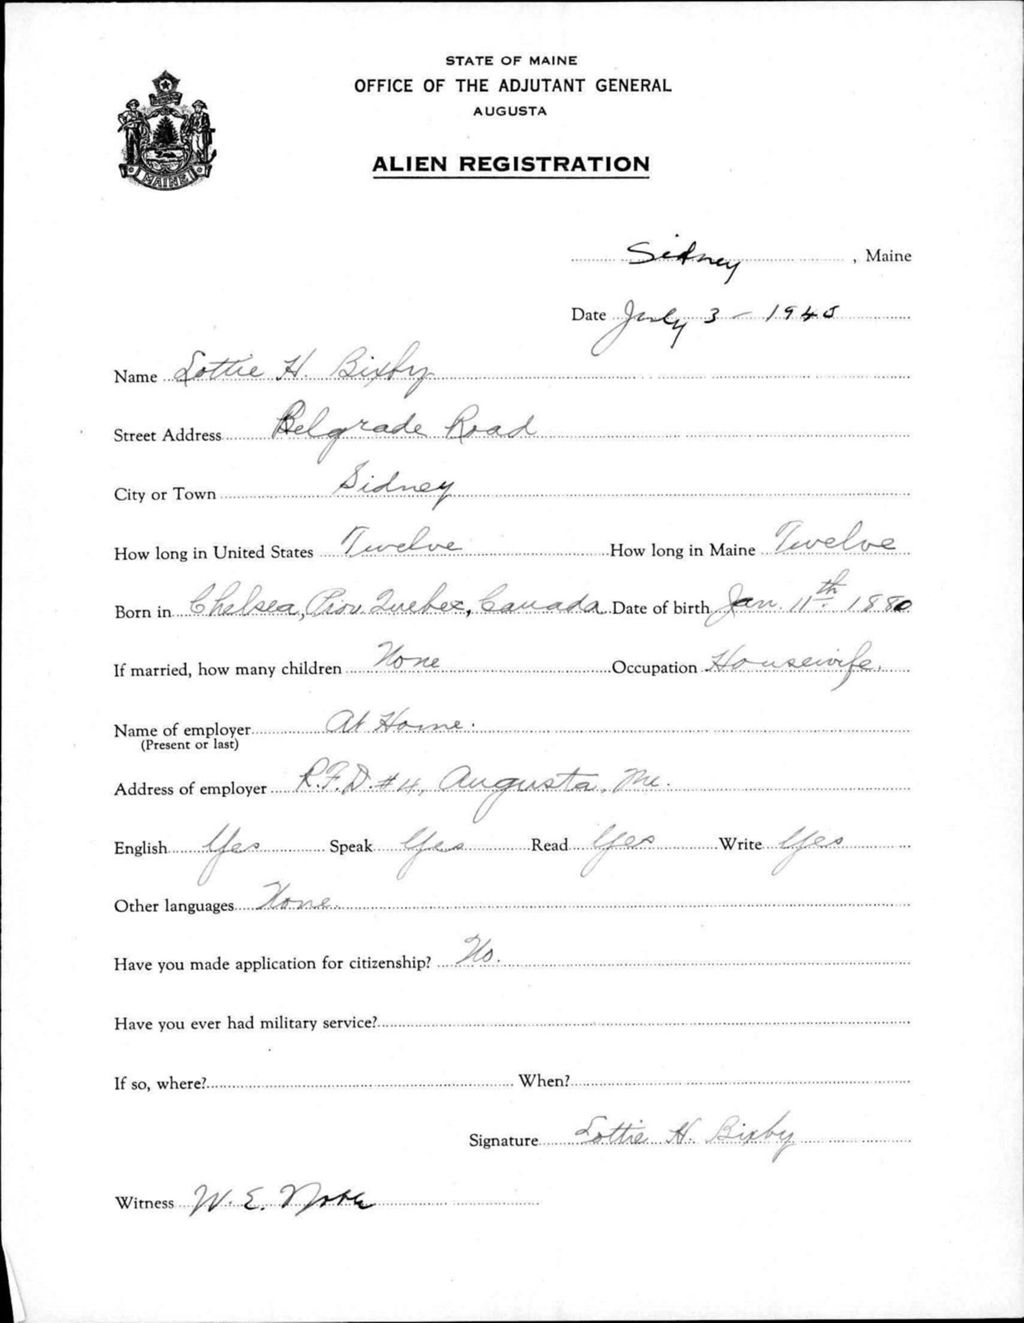 STATE OF MAINE
OFFICE OF THE ADJUTANT GENERAL
AUGUSTA
MAINE
ALIEN REGISTRATION
Sidney, Maine
Date July 3 - 1940
Name Lottie H. Bixby
Street Address Belgrade Road
City or Town Sidney
How long in United States Twelve How long in Maine Twelve
Born in Chelsea, Prov. Quebec, Canada Date of birth Jan. 11th. 1880
If married, how many children None Occupation Housewife.
Name of employer At Home.
(Present or last)
Address of employer R.F.D. #4, Augusta, Me.
English Yes Speak Yes Read Yes Write Yes
Other languages None.
Have you made application for citizenship? No.
Have you ever had military service?
If so, where? When?
Signature Lottie H. Bixby
Witness W. E. Noble